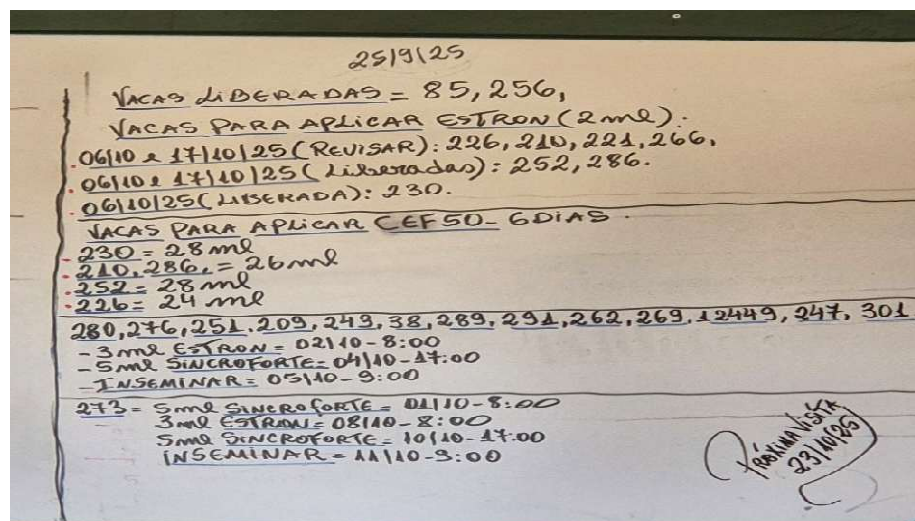 25/9/25
VACAS LIBERADAS = 85, 256,
VACAS PARA APLICAR ESTRON (2ml).
06/10 e 17/10/25 (REVISAR): 226, 210, 221, 266,
06/10 e 17/10/25 (Liberadas): 252, 286.
06/10/25 (LIBERADA): 230.
VACAS PARA APLICAR CEF50 - 6 DIAS.
230 = 28 ml
210, 286, = 26 ml
252 = 28 ml
226 = 24 ml
280, 276, 251, 209, 249, 38, 289, 291, 262, 269, 12449, 247, 301
- 3 ml ESTRON = 02/10 - 8:00
- 5 ml SINCROFORTE = 04/10 - 17:00
- INSEMINAR = 05/10 - 9:00
273 = 5 ml SINCROFORTE = 01/10 - 8:00
3 ml ESTRON = 08/10 - 8:00
5 ml SINCROFORTE = 10/10 - 17:00
INSEMINAR = 11/10 - 9:00
PRÓXIMA VISITA
23/10/25